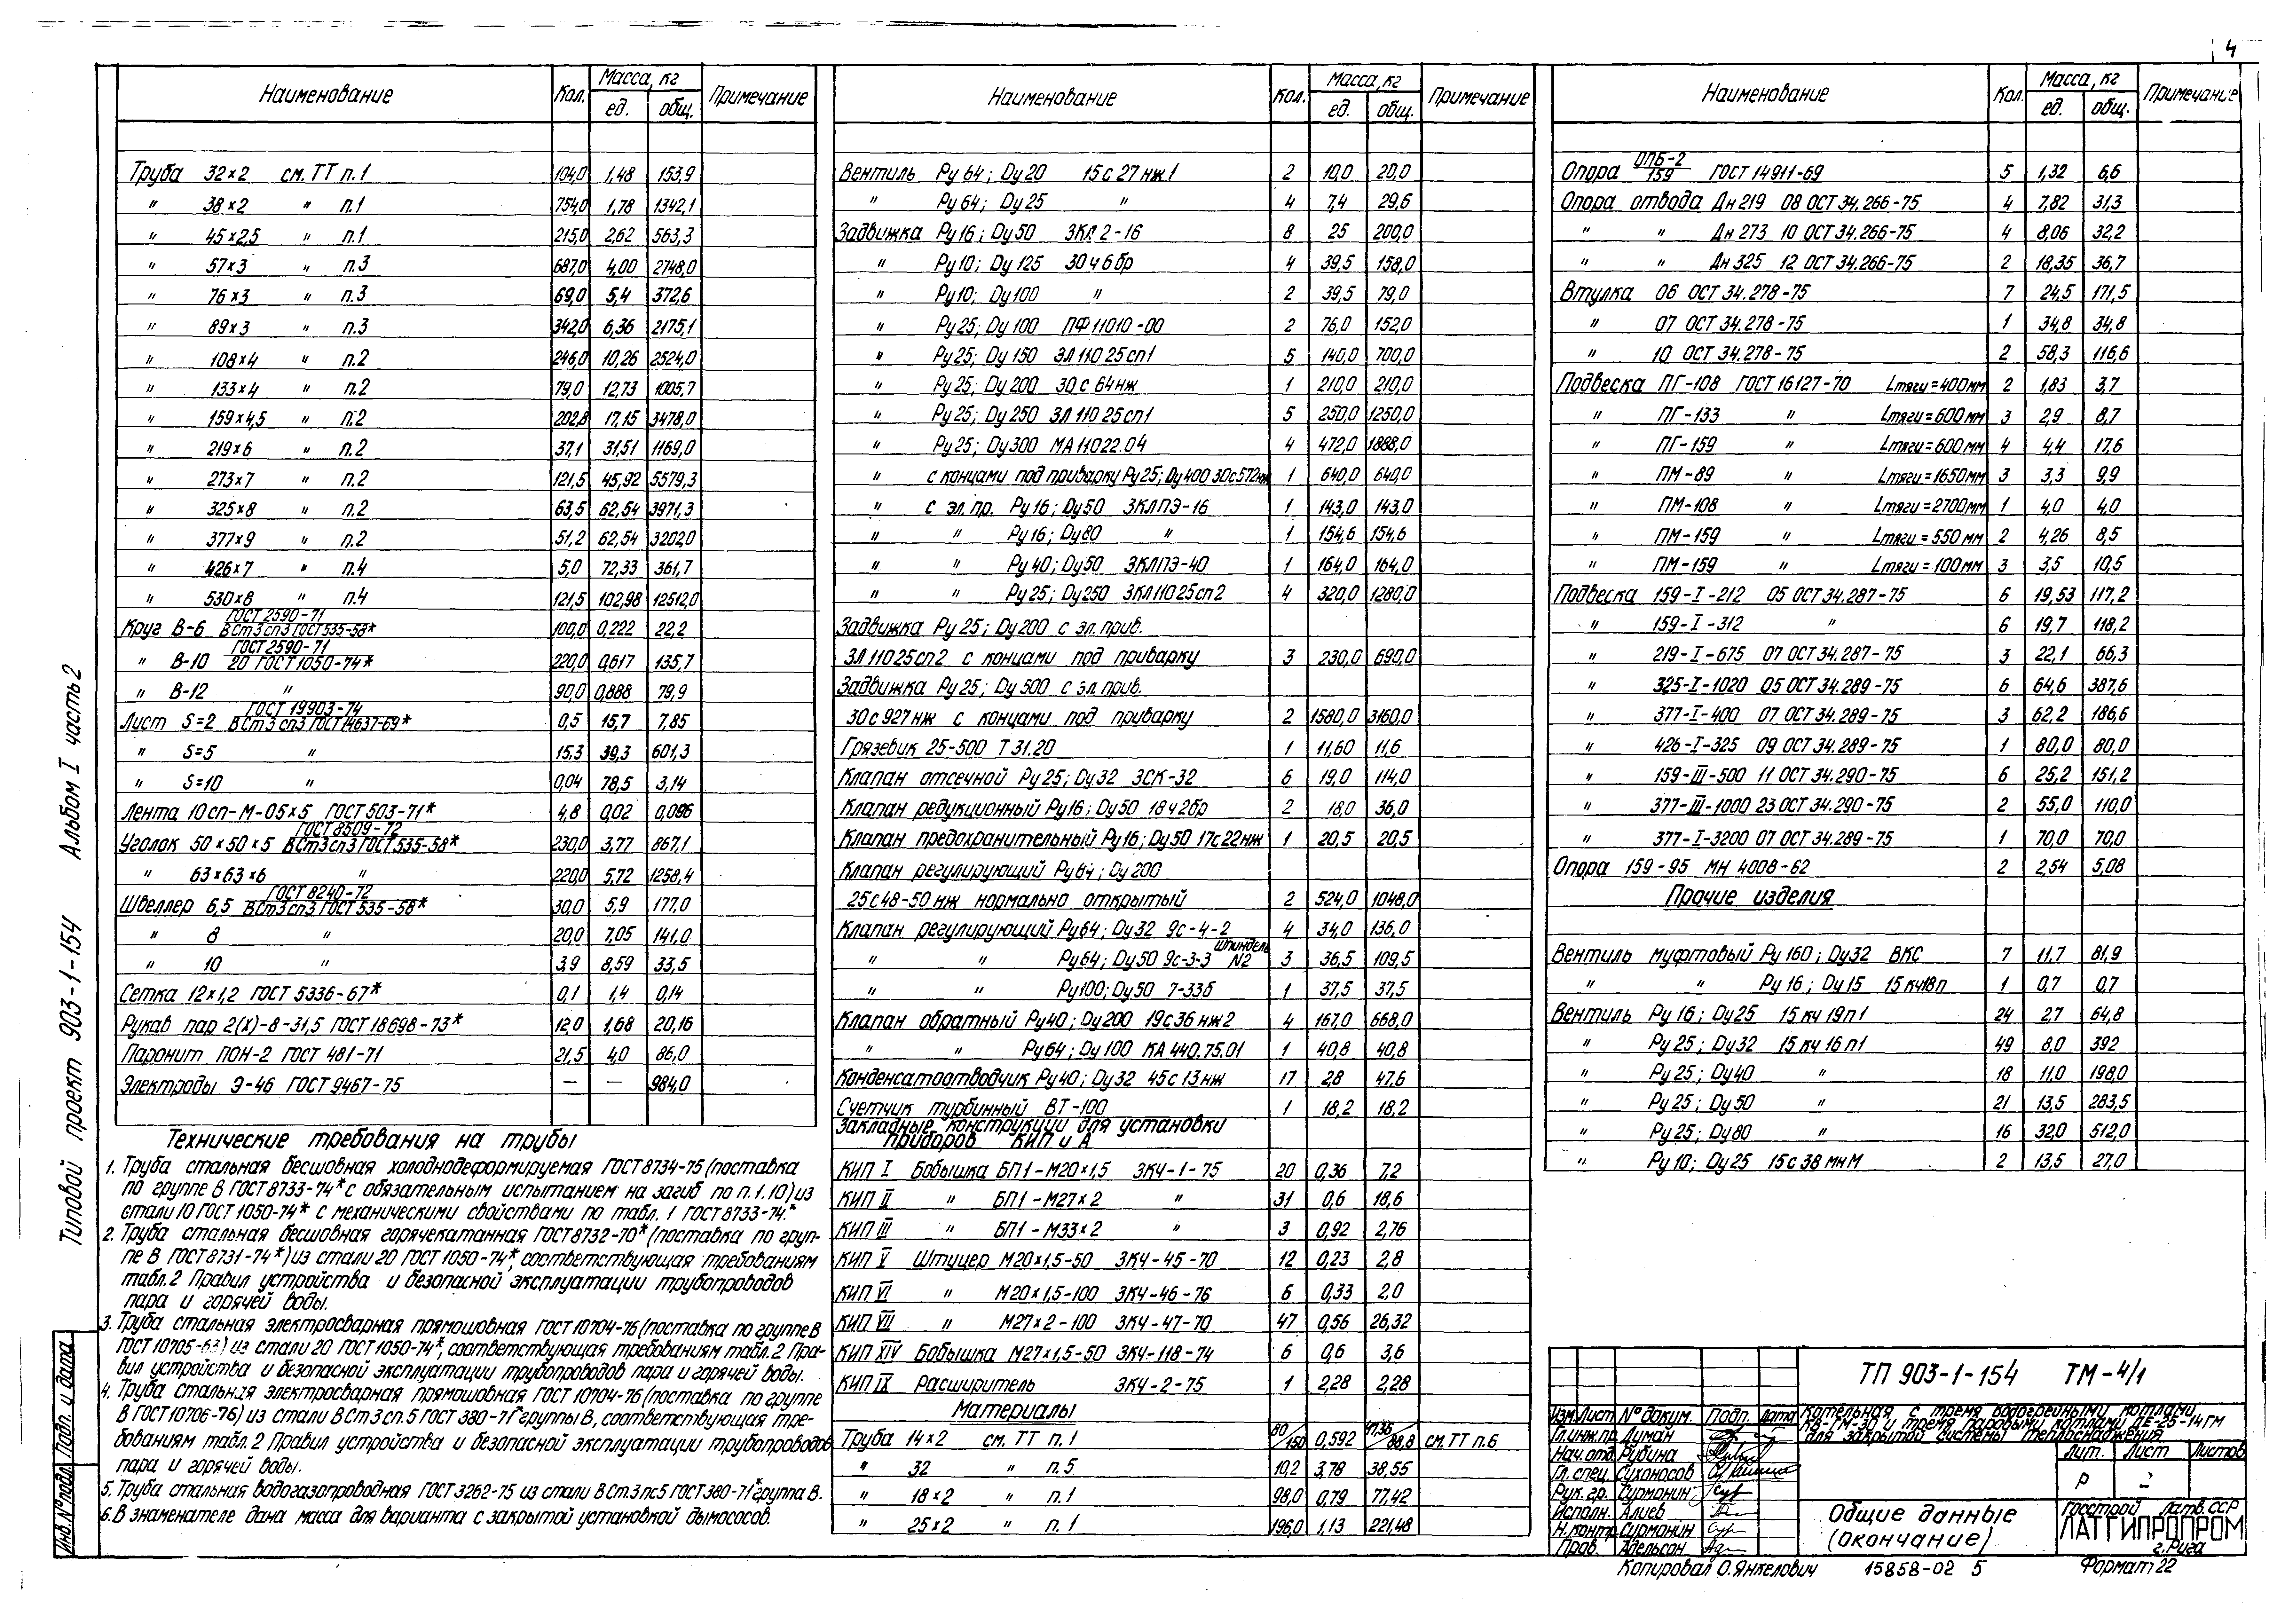 4
Типовой проект 903-1-154 Альбом I часть 2
Инв.№подл. Подп. и дата
Наименование Кол. Масса, кг ед. общ. Примечание
Труба 32×2 см. ТТ п.1 104,0 1,48 153,9
" 38×2 " п.1 754,0 1,78 1342,1
" 45×2,5 " п.1 215,0 2,62 563,3
" 57×3 " п.3 687,0 4,00 2748,0
" 76×3 " п.3 69,0 5,4 372,6
" 89×3 " п.3 342,0 6,36 2175,1
" 108×4 " п.2 246,0 10,26 2524,0
" 133×4 " п.2 79,0 12,73 1005,7
" 159×4,5 " п.2 202,8 17,15 3478,0
" 219×6 " п.2 37,1 31,51 1169,0
" 273×7 " п.2 121,5 45,92 5579,3
" 325×8 " п.2 63,5 62,54 3971,3
" 377×9 " п.2 51,2 62,54 3202,0
" 426×7 " п.4 5,0 72,33 361,7
" 530×8 " п.4 121,5 102,98 12512,0
Круг В-6 ГОСТ 2590-71 / ВСт3сп3 ГОСТ 535-58* 100,0 0,222 22,2
" В-10 ГОСТ 2590-71 / 20 ГОСТ 1050-74* 220,0 0,617 135,7
" В-12 " 90,0 0,888 79,9
Лист S=2 ГОСТ 19903-74 / ВСт3сп3 ГОСТ 14637-69* 0,5 15,7 7,85
" S=5 " 15,3 39,3 601,3
" S=10 " 0,04 78,5 3,14
Лента 10сп-М-05×5 ГОСТ 503-71* 4,8 0,02 0,096
Уголок 50×50×5 ГОСТ 8509-72 / ВСт3сп3 ГОСТ 535-58* 230,0 3,77 867,1
" 63×63×6 " 220,0 5,72 1258,4
Швеллер 6,5 ГОСТ 8240-72 / ВСт3сп3 ГОСТ 535-58* 30,0 5,9 177,0
" 8 " 20,0 7,05 141,0
" 10 " 3,9 8,59 33,5
Сетка 12×1,2 ГОСТ 5336-67* 0,1 1,4 0,14
Рукав пар 2(Х)-8-31,5 ГОСТ 18698-73* 12,0 1,68 20,16
Паронит ПОН-2 ГОСТ 481-71 21,5 4,0 86,0
Электроды Э-46 ГОСТ 9467-75 — — 984,0
Технические требования на трубы
1. Труба стальная бесшовная холоднодеформируемая ГОСТ 8734-75 (поставка
по группе В ГОСТ 8733-74* с обязательным испытанием на загиб по п.1.10) из
стали 10 ГОСТ 1050-74* с механическими свойствами по табл. 1 ГОСТ 8733-74.*
2. Труба стальная бесшовная горячекатанная ГОСТ 8732-70* (поставка по груп-
пе В ГОСТ 8731-74*) из стали 20 ГОСТ 1050-74*, соответствующая требованиям
табл.2 Правил устройства и безопасной эксплуатации трубопроводов
пара и горячей воды.
3. Труба стальная электросварная прямошовная ГОСТ 10704-76 (поставка по группе В
ГОСТ 10705-63) из стали 20 ГОСТ 1050-74*, соответствующая требованиям табл. 2 Пра-
вил устройства и безопасной эксплуатации трубопроводов пара и горячей воды.
4. Труба стальная электросварная прямошовная ГОСТ 10704-76 (поставка по группе
В ГОСТ 10706-76) из стали ВСт.3 сп.5 ГОСТ 380-71* группы В, соответствующая тре-
бованиям табл.2 Правил устройства и безопасной эксплуатации трубопроводов
пара и горячей воды.
5. Труба стальная водогазопроводная ГОСТ 3262-75 из стали ВСт.3 пс5 ГОСТ 380-71* группа В.
6. В знаменателе дана масса для варианта с закрытой установкой дымососов.
Наименование Кол. Масса, кг ед. общ. Примечание
Вентиль Ру 64; Dу 20 15с 27 нж 1 2 10,0 20,0
" Ру 64; Dу 25 " 4 7,4 29,6
Задвижка Ру 16; Dу 50 ЗКЛ 2-16 8 25 200,0
" Ру10; Dу 125 30ч6бр 4 39,5 158,0
" Ру10; Dу100 " 2 39,5 79,0
" Ру25; Dу 100 ПФ 11010-00 2 76,0 152,0
" Ру25; Dу 150 ЗЛ 11025сп1 5 140,0 700,0
" Ру25; Dу 200 30с 64нж 1 210,0 210,0
" Ру25; Dу 250 ЗЛ 11025сп1 5 250,0 1250,0
" Ру25; Dу300 МА 11022.04 4 472,0 1888,0
" с концами под приварку Ру25; Dу400 30с572нж 1 640,0 640,0
" с эл. пр. Ру16; Dу50 ЗКЛПЭ-16 1 143,0 143,0
" " Ру16; Dу80 " 1 154,6 154,6
" " Ру40; Dу50 ЗКЛПЭ-40 1 164,0 164,0
" " Ру25; Dу250 ЗКЛ11025сп2 4 320,0 1280,0
Задвижка Ру 25; Dу200 с эл. прив.
ЗЛ 11025сп2 с концами под приварку 3 230,0 690,0
Задвижка Ру 25; Dу 500 с эл. прив.
30с927нж с концами под приварку 2 1580,0 3160,0
Грязевик 25-500 Т 31.20 1 11,60 11,6
Клапан отсечной Ру 25; Dу32 ЗСК-32 6 19,0 114,0
Клапан редукционный Ру16; Dу50 18ч2бр 2 18,0 36,0
Клапан предохранительный Ру16; Dу50 17с22нж 1 20,5 20,5
Клапан регулирующий Ру64; Dу200
25с48-50нж нормально открытый 2 524,0 1048,0
Клапан регулирующий Ру64; Dу32 9с-4-2 4 34,0 136,0
" " Ру64; Dу50 9с-3-3 шпиндель N2 3 36,5 109,5
" " Ру100; Dу50 7-33б 1 37,5 37,5
Клапан обратный Ру40; Dу200 19с36нж2 4 167,0 668,0
" " Ру64; Dу100 КА 440.75.01 1 40,8 40,8
Конденсатоотводчик Ру40; Dу32 45с13нж 17 2,8 47,6
Счетчик турбинный ВТ-100 1 18,2 18,2
Закладные конструкции для установки
приборов КИП и А
КИП I Бобышка БП1-М20×1,5 ЗКЧ-1-75 20 0,36 7,2
КИП II " БП1-М27×2 " 31 0,6 18,6
КИП III " БП1-М33×2 " 3 0,92 2,76
КИП V Штуцер М20×1,5-50 ЗКЧ-45-70 12 0,23 2,8
КИП VI " М20×1,5-100 ЗКЧ-46-76 6 0,33 2,0
КИП VII " М27×2-100 ЗКЧ-47-70 47 0,56 26,32
КИП XIV Бобышка М27×1,5-50 ЗКЧ-118-74 6 0,6 3,6
КИП IX Расширитель ЗКЧ-2-75 1 2,28 2,28
Материалы
Труба 14×2 см. ТТ п.1 80/150 0,592 47,36/88,8 см. ТТ п.6
" 32 " п.5 10,2 3,78 38,55
" 18×2 " п.1 98,0 0,79 77,42
" 25×2 " п.1 196,0 1,13 221,48
Наименование Кол. Масса, кг ед. общ. Примечание
Опора ОПБ-2/159 ГОСТ 14911-69 5 1,32 6,6
Опора отвода Дн 219 08 ОСТ 34.266-75 4 7,82 31,3
" " Дн 273 10 ОСТ 34.266-75 4 8,06 32,2
" " Дн 325 12 ОСТ 34.266-75 2 18,35 36,7
Втулка 06 ОСТ 34.278-75 7 24,5 171,5
" 07 ОСТ 34.278-75 1 34,8 34,8
" 10 ОСТ 34.278-75 2 58,3 116,6
Подвеска ПГ-108 ГОСТ 16127-70 Lтяги=400мм 2 1,83 3,7
" ПГ-133 " Lтяги=600мм 3 2,9 8,7
" ПГ-159 " Lтяги=600мм 4 4,4 17,6
" ПМ-89 " Lтяги=1650мм 3 3,3 9,9
" ПМ-108 " Lтяги=2700мм 1 4,0 4,0
" ПМ-159 " Lтяги=550мм 2 4,26 8,5
" ПМ-159 " Lтяги=100мм 3 3,5 10,5
Подвеска 159-I-212 05 ОСТ 34.287-75 6 19,53 117,2
" 159-I-312 " 6 19,7 118,2
" 219-I-675 07 ОСТ 34.287-75 3 22,1 66,3
" 325-I-1020 05 ОСТ 34.289-75 6 64,6 387,6
" 377-I-400 07 ОСТ 34.289-75 3 62,2 186,6
" 426-I-325 09 ОСТ 34.289-75 1 80,0 80,0
" 159-III-500 11 ОСТ 34.290-75 6 25,2 151,2
" 377-III-1000 23 ОСТ 34.290-75 2 55,0 110,0
" 377-I-3200 07 ОСТ 34.289-75 1 70,0 70,0
Опора 159-95 МН 4008-62 2 2,54 5,08
Прочие изделия
Вентиль муфтовый Ру 160; Dу32 ВКС 7 11,7 81,9
" " Ру 16; Dу 15 15кч18п 1 0,7 0,7
Вентиль Ру 16; Dу25 15 кч 19п1 24 2,7 64,8
" Ру 25; Dу32 15 кч 16 п1 49 8,0 392
" Ру 25; Dу40 " 18 11,0 198,0
" Ру 25; Dу50 " 21 13,5 283,5
" Ру 25; Dу80 " 16 32,0 512,0
" Ру 10; Dу 25 15с 38 мнМ 2 13,5 27,0
ТП 903-1-154 ТМ-4/1
Изм. Лист № докум. Подп. Дата
Котельная с тремя водогрейными котлами
КВ-ГМ-30 и тремя паровыми котлами ДЕ-25-14ГМ
для закрытой системы теплоснабжения
Гл.инж.пр. Думан
Нач. отд. Рубина
Гл. спец. Сухоносов
Рук. гр. Сурмонин
Исполн. Алиев
Н. контр. Сурмонин
Пров. Адельсон
Лит. Лист Листов
Р
Общие данные
(окончание)
Госстрой Латв.ССР
ЛАТГИПРОПРОМ
г. Рига
Копировал О.Янкелович 15858-02 5 Формат 22